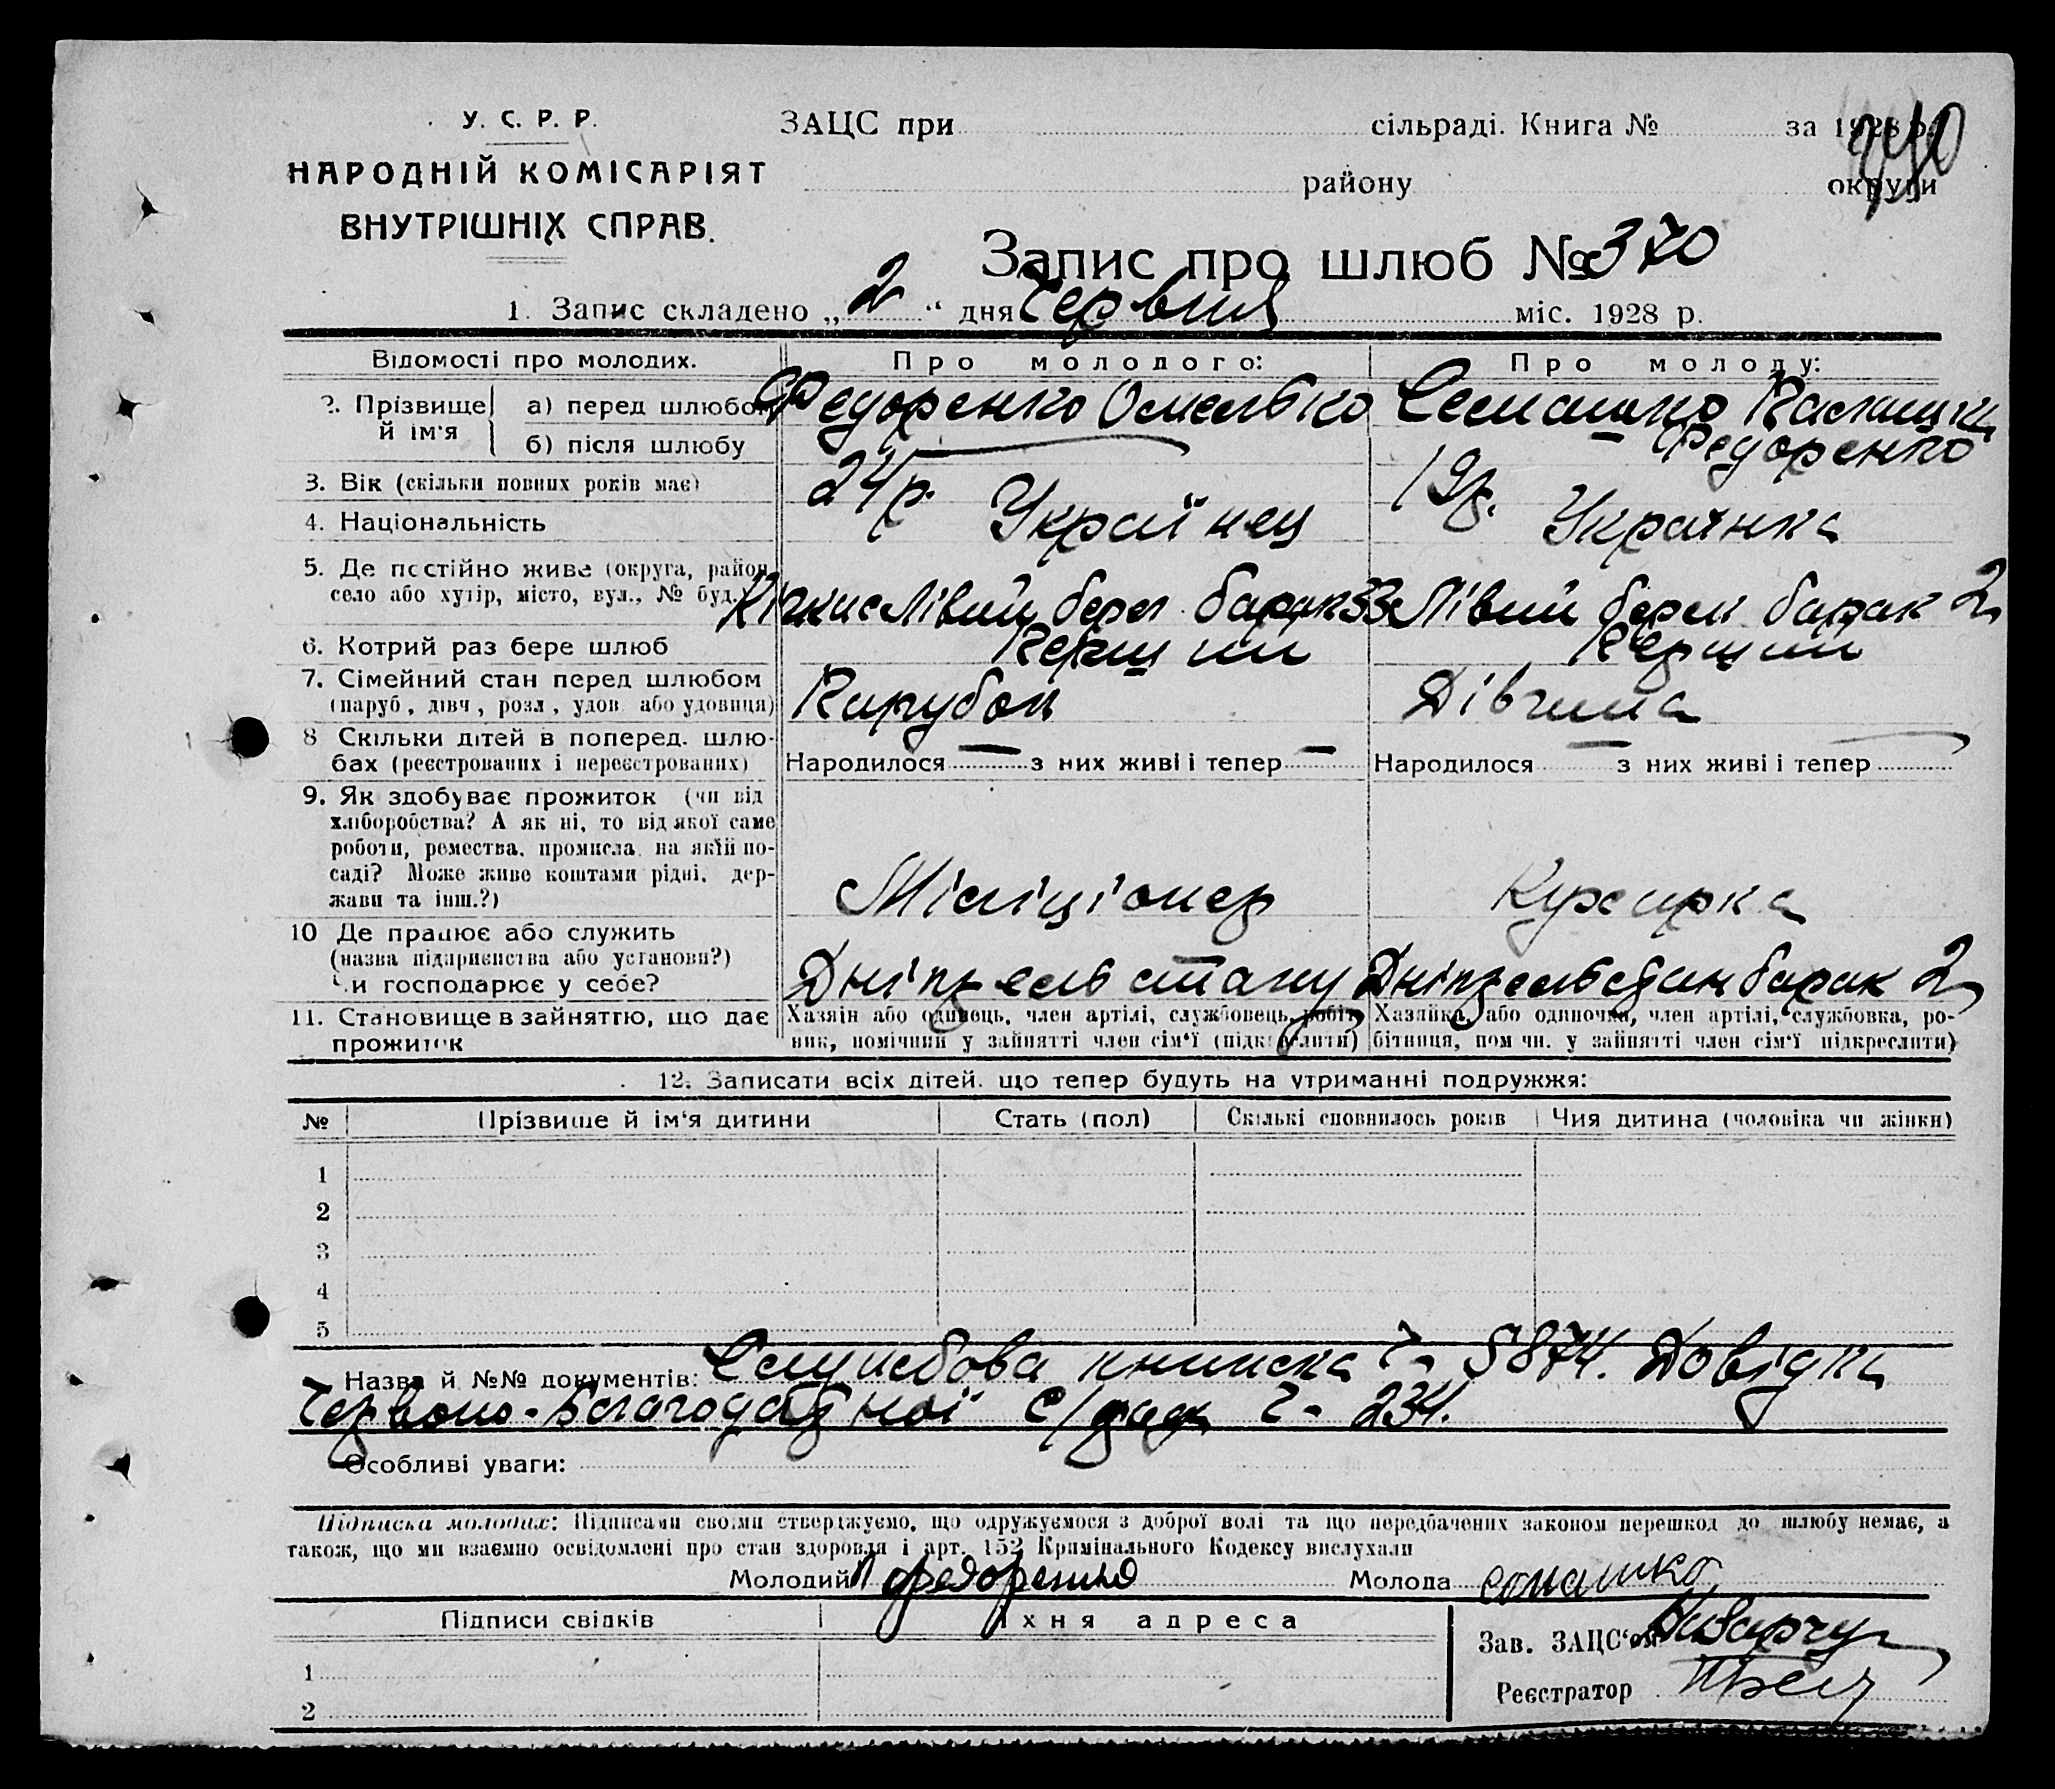 У. С. Р. Р.
НАРОДНІЙ КОМІСАРІЯТ
ВНУТРІШНІХ СПРАВ.
ЗАЦС при сільраді. Книга № за 1928 р.
району округи
Запис про шлюб № 370
1. Запис складено „2“ дня Червня міс. 1928 р.
Відомості про молодих. Про молодого: Про молоду:
2. Прізвище й ім'я
а) перед шлюбом Федоренко Омелько Семашко
б) після шлюбу Федоренко
3. Вік (скільки повних років має) 24 р. 19 р.
4. Національність Українец Украінка
5. Де постійно живе (округа, район,
село або хутір, місто, вул., № буд.) Кічкас Лівий берег барак 33 Лівий берег барак 2
6. Котрий раз бере шлюб Перший Перший
7. Сімейний стан перед шлюбом
(паруб., дівч., розл., удов. або удовиця) Парубок Дівчина
8 Скільки дітей в поперед. шлю-
бах (реєстрованих і нереєстрованих) Народилося — з них живі і тепер — Народилося — з них живі і тепер —
9. Як здобуває прожиток (чи від
хліборобства? А як ні, то від якої саме
роботи, ремества, промисла, на якій по-
саді? Може живе коштами рідні, дер-
жави та інш.?) Міліціонер Кухарка
10 Де працює або служить
(назва підприємства або установи?)
Чи господарює у себе? Дніпрельстану барак 2
11. Становище в зайняттю, що дає
прожиток
Хазяїн або одинець, член артілі, службовець, робіт-
ник, помічний у зайнятті член сім'ї (підкреслити)
Хазяйка, або одиночка, член артілі, службовка, ро-
бітниця, помічн. у зайнятті член сім'ї підкреслити)
12. Записати всіх дітей, що тепер будуть на утриманні подружжя:
№ Прізвище й ім'я дитини Стать (пол) Скількі сповнилось років Чия дитина (чоловіка чи жінки)
1
2
3
4
5
Назва й №№ документів: Службова книжка ч- 5874. Довідка
Червоно- с/ради ч- 234.
Особливі уваги:
Підписка молодих: Підписами своїми стверджуємо, що одружуємося з доброї волі та що передбачених законом перешкод до шлюбу немає, а
також, що ми взаємно освідомлені про стан здоровля і арт. 152 Кримінального Кодексу вислухали
Молодий Федоренко Молода Сомашко
Підписи свідків Їхня адреса
Зав. ЗАЦС'ом
1
Реєстратор
2